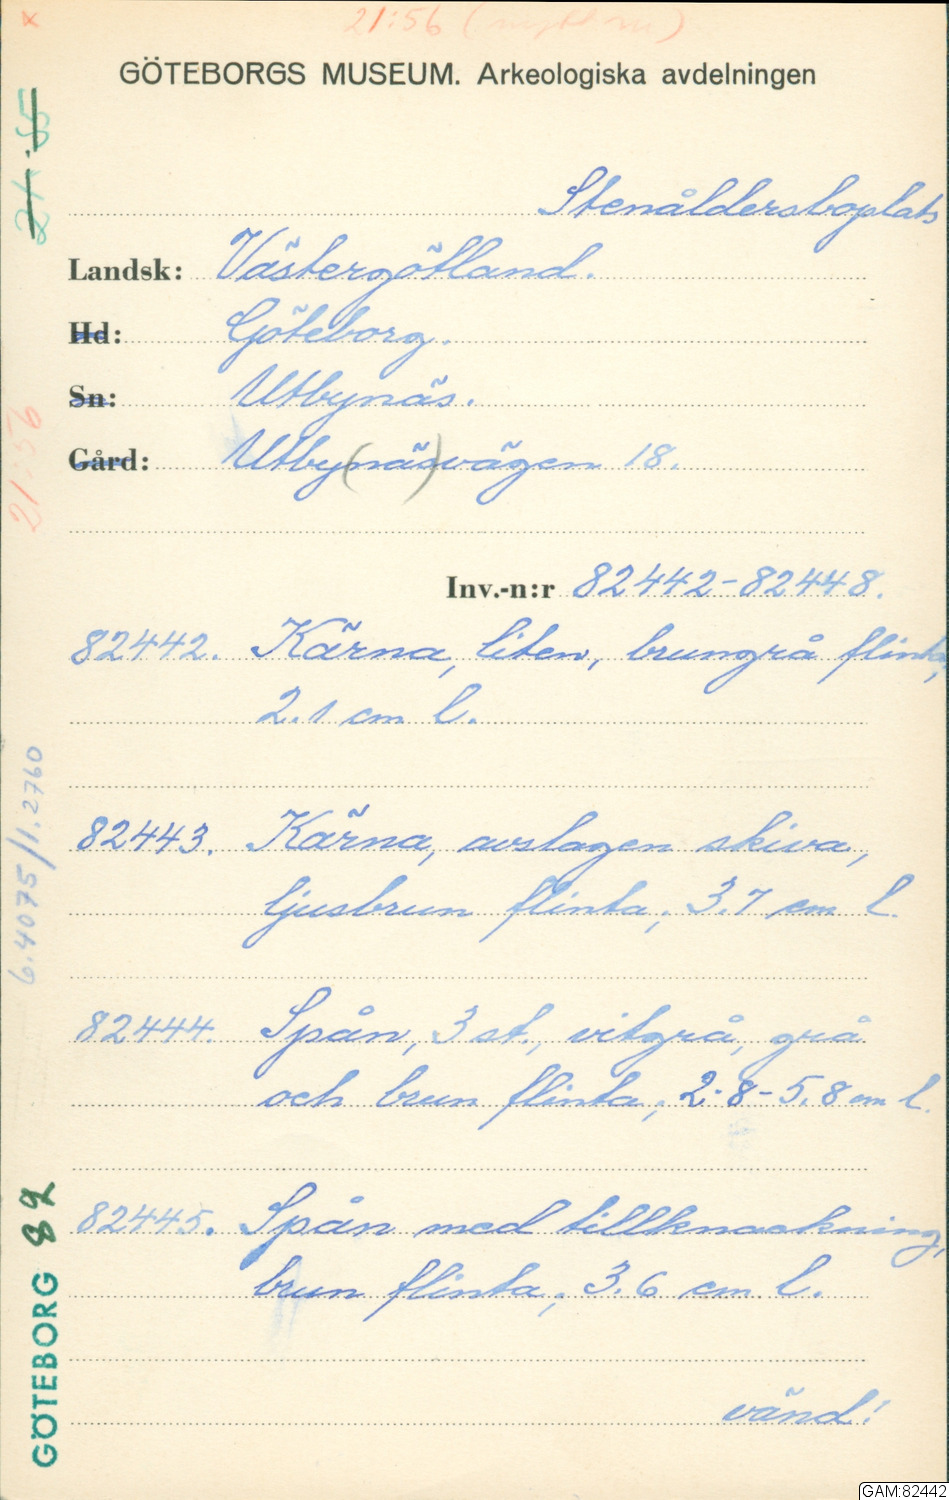 x
21:56 (nytt nr)
GÖTEBORGS MUSEUM. Arkeologiska avdelningen
21.55
Stenåldersboplats
Landsk: Västergötland.
Hd: Göteborg.
Sn: Utbynäs.
Gård: Utby(näs)vägen 18.
21:56
Inv.-n:r 82442-82448.
82442. Kärna, liten, brungrå flinta,
2.1 cm l.
82443. Kärna, avslagen skiva,
ljusbrun flinta, 3.7 cm l.
6.4075/1.2760
82444. Spån, 3 st., vitgrå, grå
och brun flinta, 2.8-5.8 cm l.
82445. Spån med tillknackning,
brun flinta, 3.6 cm l.
GÖTEBORG 82
vänd!
GAM:82442